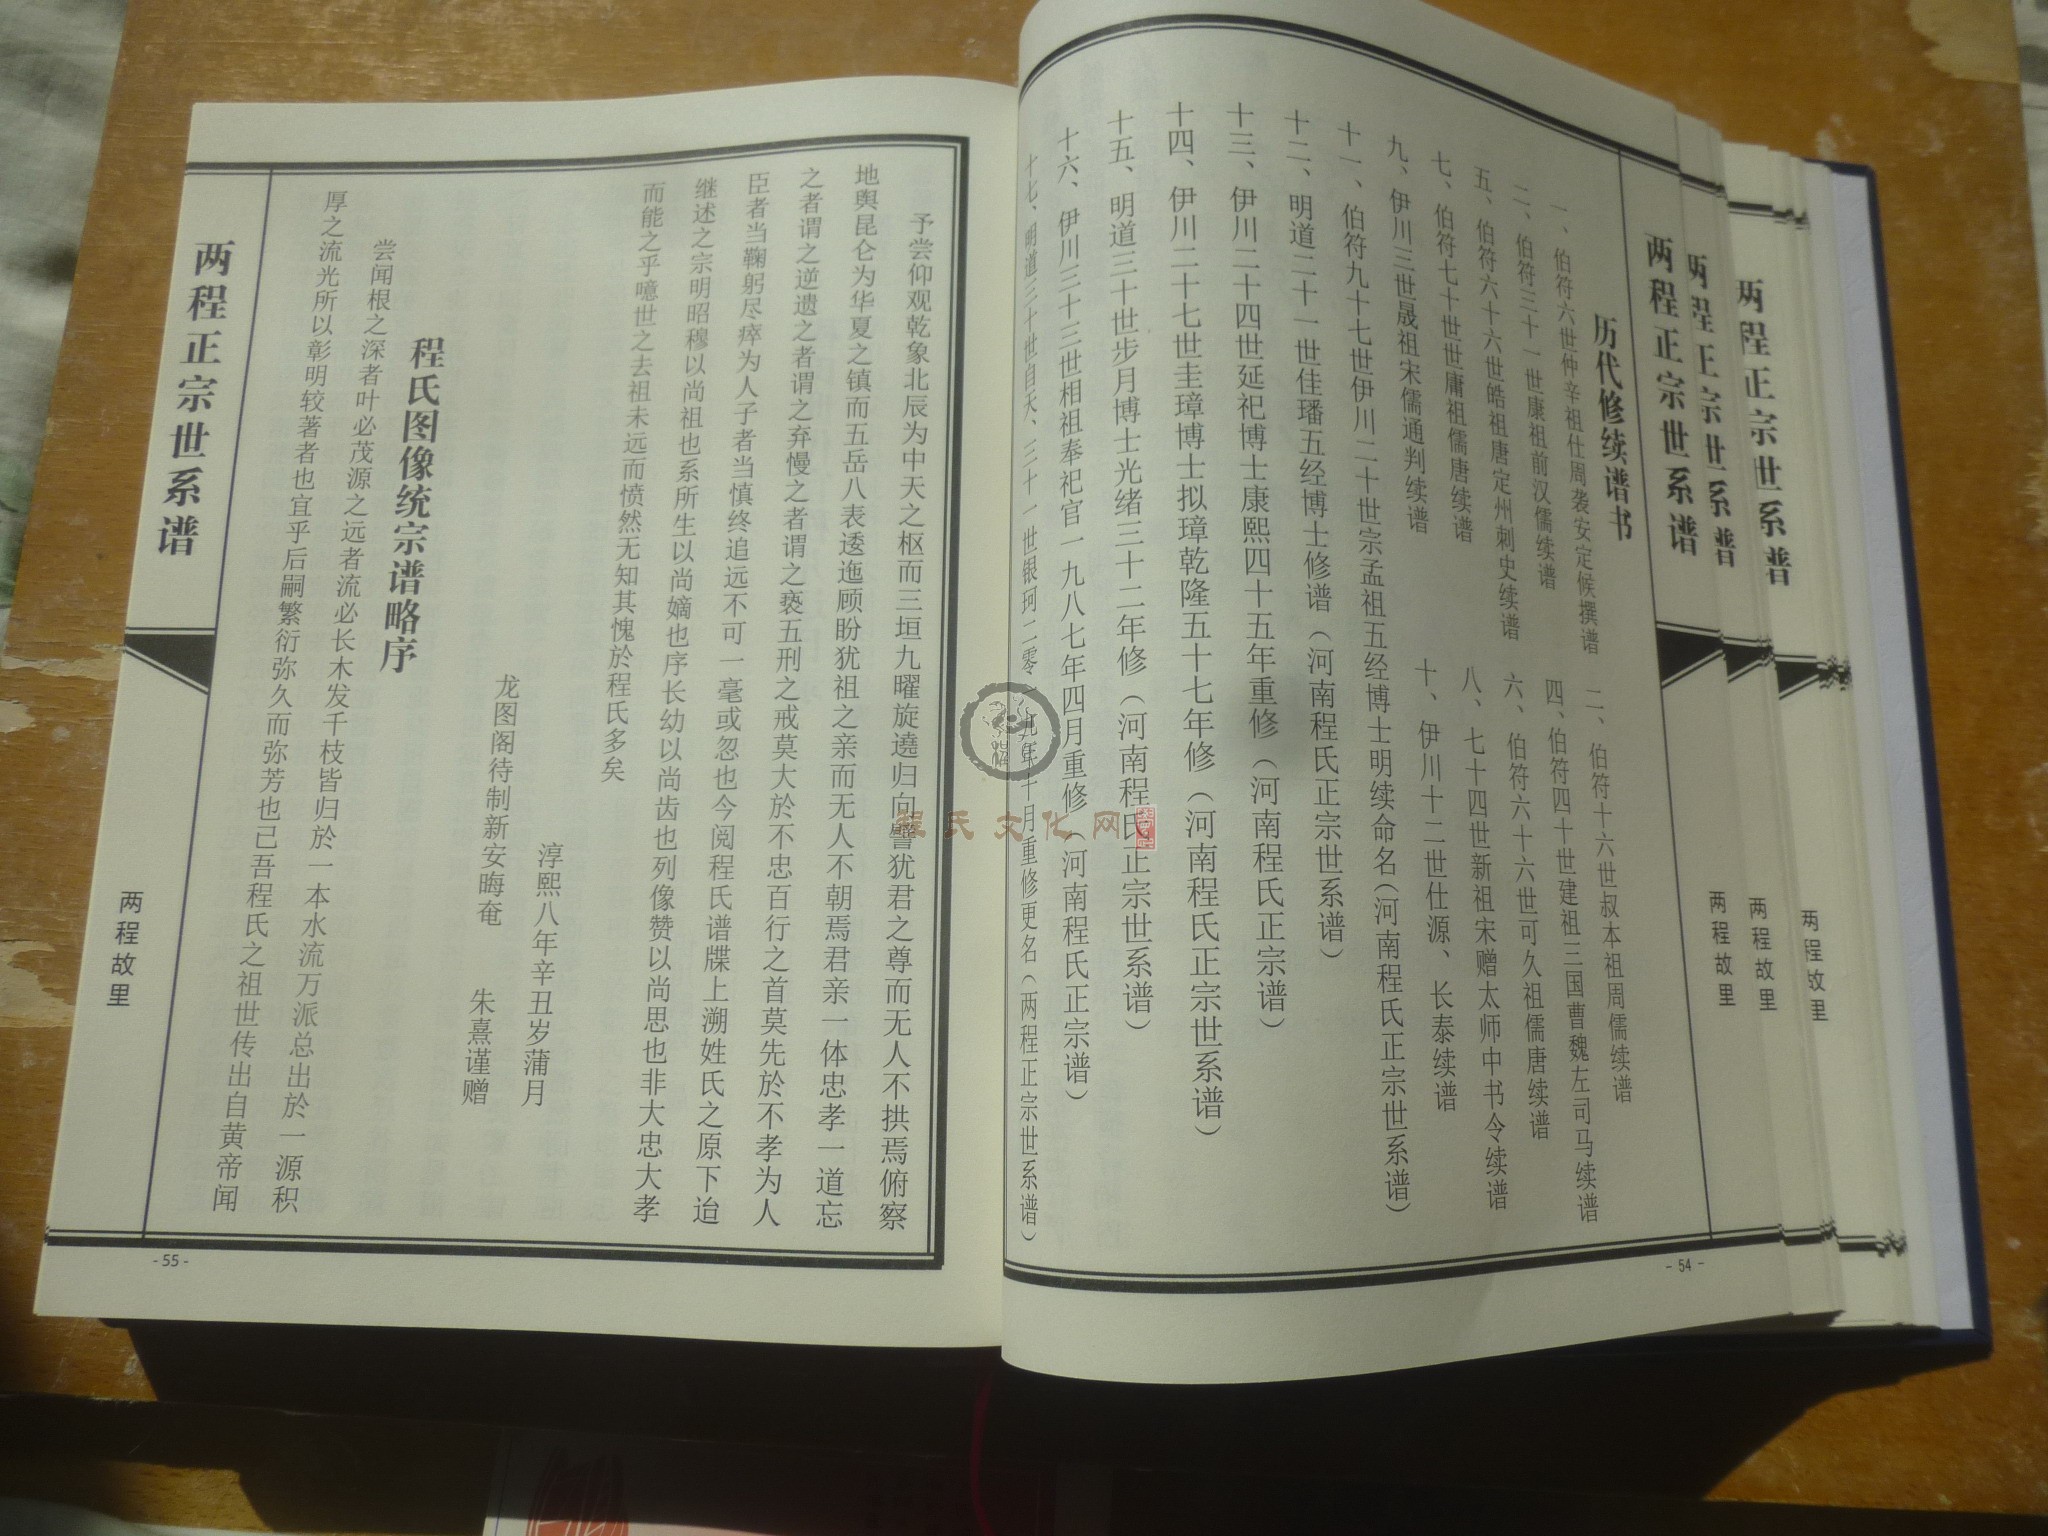 两程正宗世系谱
两程正宗世系谱
两程正宗世系谱
两程故里
两程故里
两程故里
历代修续谱书
一、伯符六世仲辛祖仕周袭安定候撰谱
二、伯符十六世叔本祖周儒续谱
二、伯符三十一世康祖前汉儒续谱
四、伯符四十世建祖三国曹魏左司马续谱
五、伯符六十六世皓祖唐定州刺史续谱
六、伯符六十六世可久祖儒唐续谱
七、伯符七十世世庸祖儒唐续谱
八、七十四世新祖宋赠太师中书令续谱
九、伊川三世晟祖宋儒通判续谱
十、伊川十二世仕源、长泰续谱
十一、伯符九十七世伊川二十世宗孟祖五经博士明续命名(河南程氏正宗世系谱)
十二、明道二十一世佳璠五经博士修谱(河南程氏正宗世系谱)
十三、伊川二十四世延祀博士康熙四十五年重修(河南程氏正宗谱)
十四、伊川二十七世圭璋博士拟璋乾隆五十七年修(河南程氏正宗世系谱)
十五、明道三十世步月博士光绪三十二年修(河南程氏正宗世系谱)
十六、伊川三十三世相祖奉祀官一九八七年四月重修(河南程氏正宗谱)
十七、明道三十世自天、三十一世银珂二零一九年十月重修更名(两程正宗世系谱)
- 54 -
予尝仰观乾象北辰为中天之枢而三垣九曜旋遶归向譬犹君之尊而无人不拱焉俯察
地舆昆仑为华夏之镇而五岳八表逶迤顾盼犹祖之亲而无人不朝焉君亲一体忠孝一道忘
之者谓之逆遗之者谓之弃慢之者谓之亵五刑之戒莫大於不忠百行之首莫先於不孝为人
臣者当鞠躬尽瘁为人子者当慎终追远不可一毫或忽也今阅程氏谱牒上溯姓氏之原下迨
继述之宗明昭穆以尚祖也系所生以尚嫡也序长幼以尚齿也列像赞以尚思也非大忠大孝
而能之乎噫世之去祖未远而愤然无知其愧於程氏多矣
淳熙八年辛丑岁蒲月
龙图阁待制新安晦奄 朱熹谨赠
程氏图像统宗谱略序
尝闻根之深者叶必茂源之远者流必长木发千枝皆归於一本水流万派总出於一源积
厚之流光所以彰明较著者也宜乎后嗣繁衍弥久而弥芳也己吾程氏之祖世传出自黄帝闻
两程正宗世系谱
两程故里
- 55 -
程氏文化网